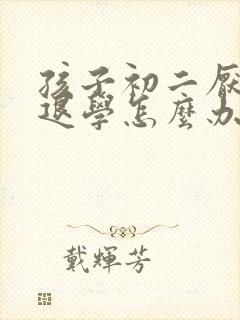 孩子初二
退學怎麼办
戴輝芳